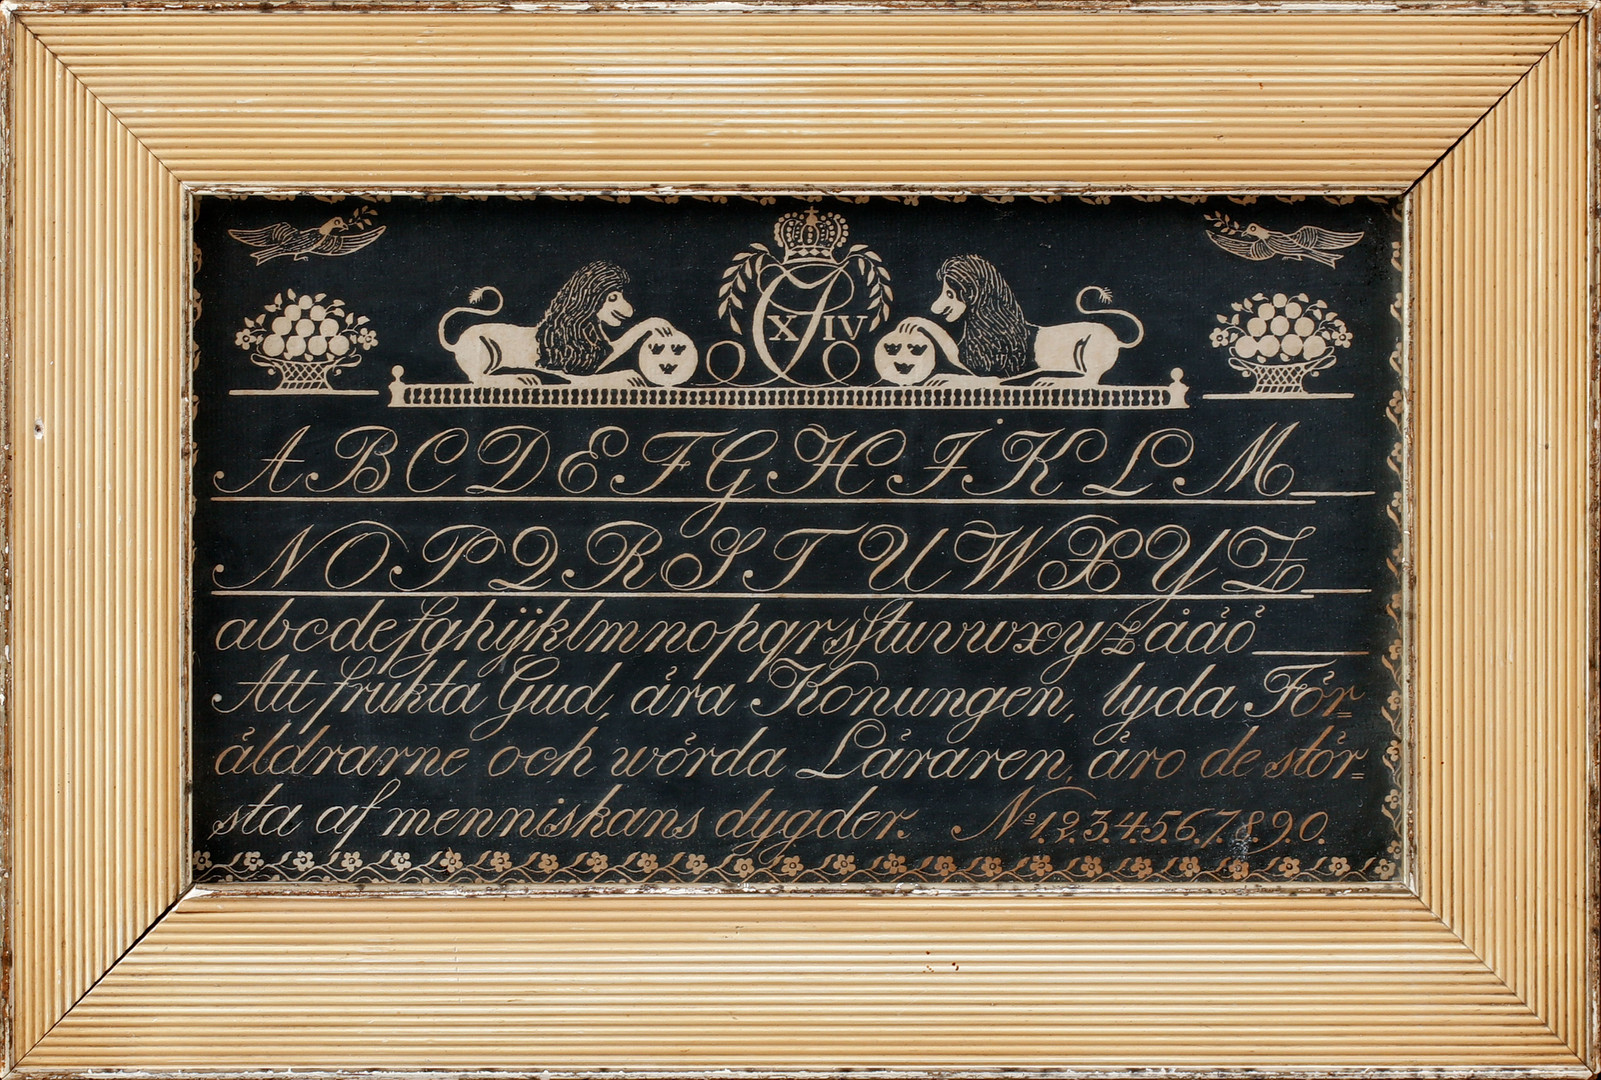 CJ
XIV
A B C D E F G H I K L M
N O P Q R S T U W X Y Z
abcdefghijklmnopqrsſstuvwxyzåäö
Att frukta Gud, ära Konungen, lyda För=
äldrarne och wörda Läraren, äro de stör=
sta af menniskans dygder. No. 1.2.3.4.5.6.7.8.9.0.